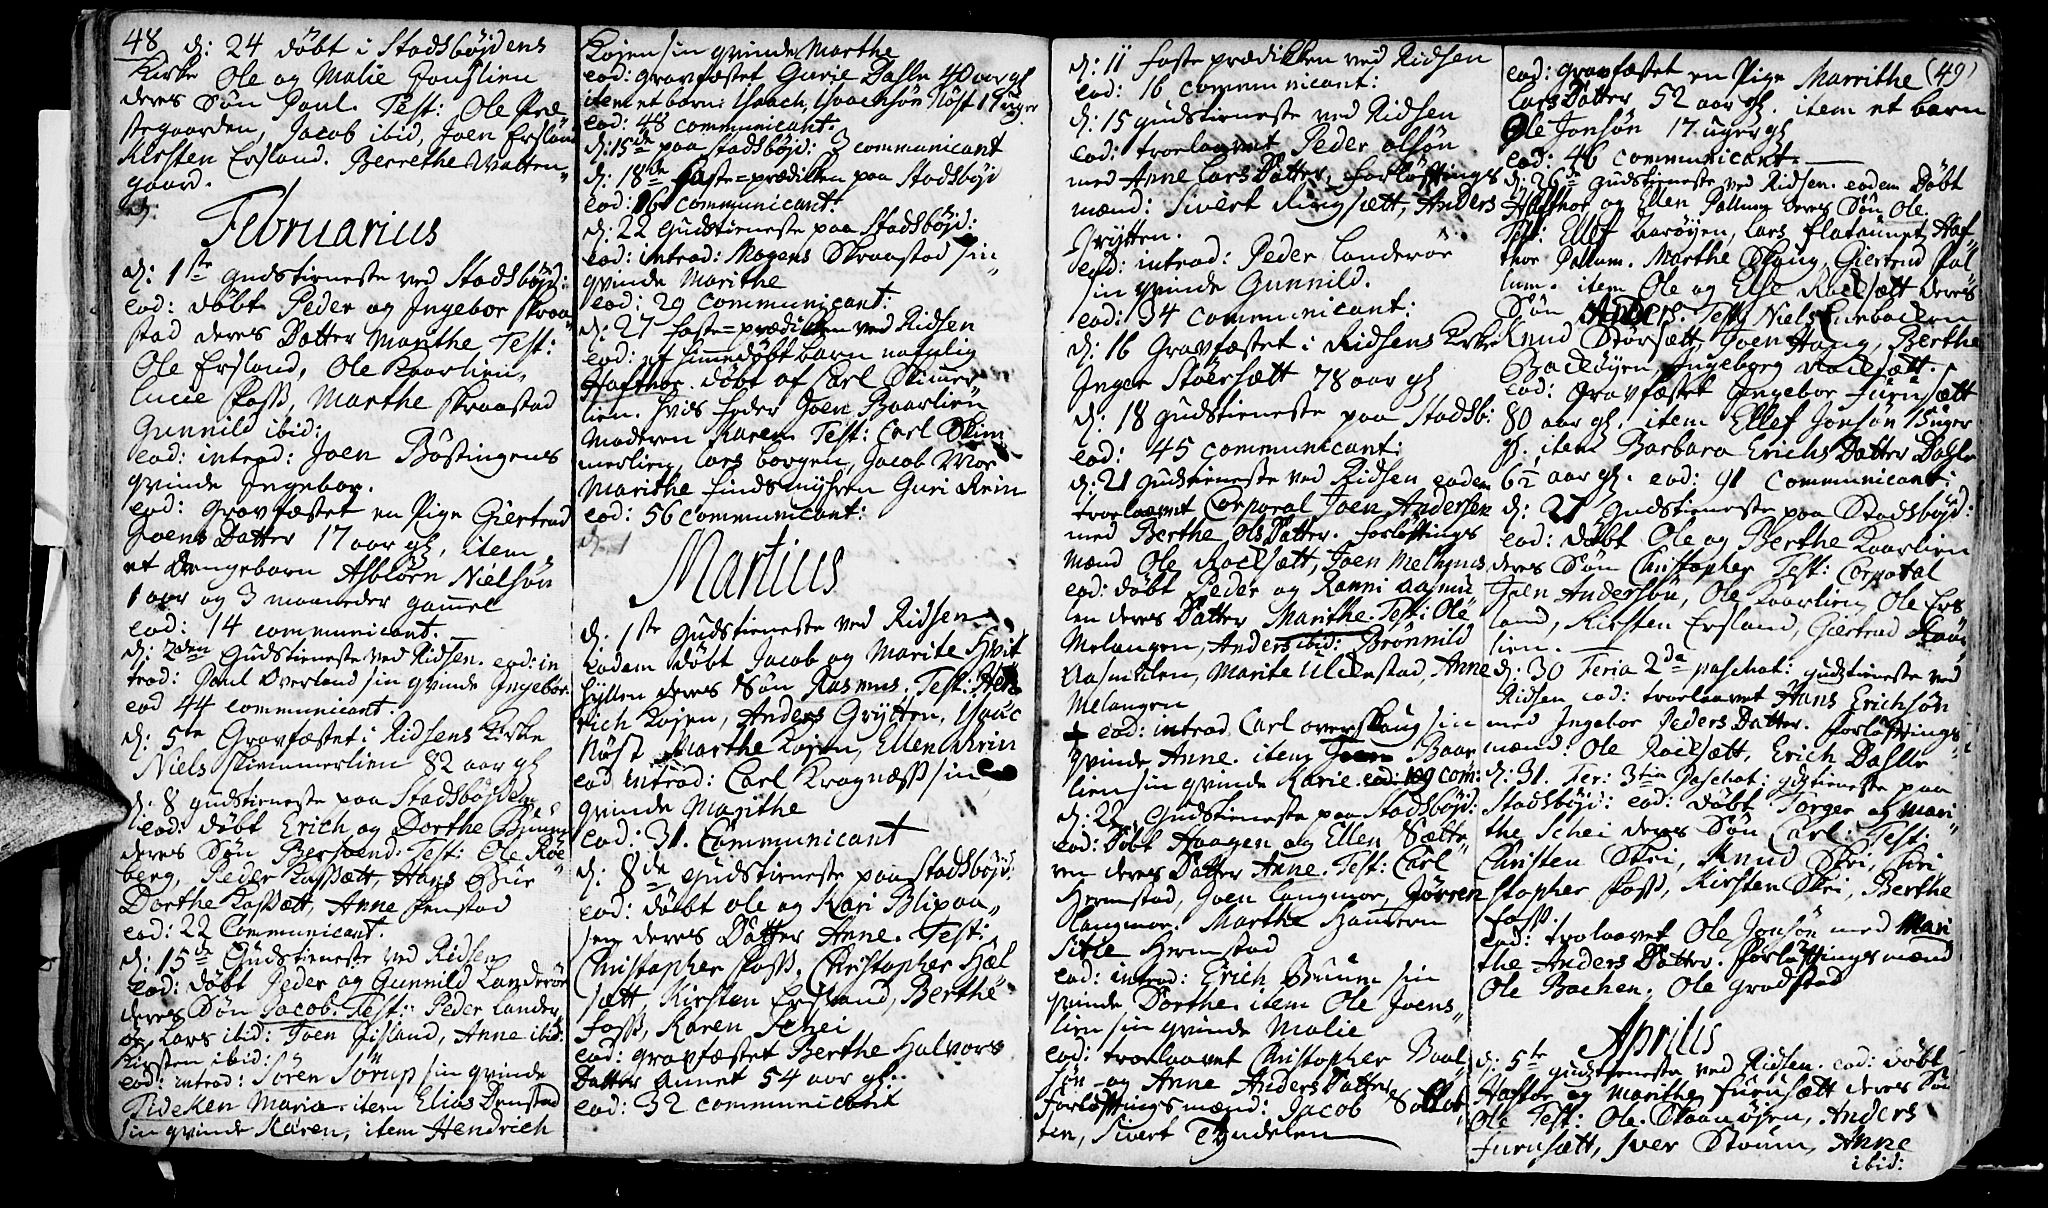 48
d: 24 döbt i Stadsböjdens
Kirke Ole og Malie Jonslien
deres Sön Paul. Test: Ole Præ
stegaarden, Jacob ibid, Joen Ersland
Kirsten Ersland. Berrethe Watten
gaard.
Februarius
d: 1ste gudstieneste ved Stadsböjd:
eod: döbt Peder og Ingebor Skraa
stad deres Datter Marithe Test:
Ole Ersland, Ole Kaarlien,
Lucie Foss, Marthe Skraastad
Gunnild ibid:
eod: introd: Joen Böstingens
qvinde Ingebor.
eod: gravfæstet en Pige Giertrud
Joens Datter 17 aar gl, item
et drengebarn Asbiörn Nielsön
1 aar og 3 maaneder gammel
eod: 14 communicant.
d: 2den Gudstieneste ved Ridsen. eod: in
trod: Paul Overland sin qvinde Ingebor
eod 44 communicant.
d: 5te Gravfæstet i Ridsens Kirke
Niels Skimmerlien 82 aar gl
d: 8 gudstieneste paa Stadsböjden
eod: döbt Erich og Dorthe Buum
deres Sön Bersvend: Test: Ole Röe
berg, Peder Kassætt, Hans Buu
Dorthe Kassætt, Anne Fenstad
eod: 22 Communicant.
d: 15de Gudstieneste ved Ridsen
eod: döbt Peder og Gunnild Landerör
deres Sön Jacob. Test: Peder Lander
ör, Lars ibid: Joen Fisland, Anne ibid:
Kirsten ibid:
eod: introd: Sören Sörup sin qvinde
Fideken Maria. item Elias Denstad
sin qvinde Karen, item Hendrich
Kojen sin qvinde Marthe
eod: gravfæstet Gurie Dahle 40 aar gl
item et barn: Isaach Isaachsön Röst 17 uger
eod: 48 communicant.
d: 15de paa Stadsböjd: 3 communicant
d: 18de faste=prædiken paa Stadsböjd
eod: 16 communicant.
d: 22 Gudstieneste paa Stadsböjd:
eod: introd: Mogens Skraastad sin
qvinde Marithe
eod: 29 communicant:
d: 27 faste=prædiken ved Ridsen
eod: et himmedöbt barn nafnlig
Hafthor. döbt af Carl Skimer
lien. hvis fader Joen Baarlien
moderen Karen. Test: Carl Skim
merlien, Lars borgen, Jacob Moe
Marithe Findsmyhren Guri Rein
eod: 56 communicant:
d. 1
Martius
d: 1ste Gudstieneste ved Ridsen
Eodem döbt Jacob og Marite Hvit
hÿllen deres Sön Rasmus. Test: Hen
rich Kojen, Anders Grÿtten, Isaac
Röst Marthe Kojen, Ellen Brin
eod introd: Carl Kragnæss sin
qvinde Marithe
eod: 31. Communicant
d: 8de gudstieneste paa Stadsböjd:
eod: döbt Ole og Kari Blixaa
sen deres Datter Anne. Test:
Christopher Foss, Christopher Hæl
sætt, Kirsten Ersland, Berthe
Foss, Karen Schei
eod: gravfæstet Berthe Halvors
Datter Annet 54 aar gl:
eod: 32 communicant
d: 11 faste prædiken ved Ridsen
eod: 16 communicant:
d: 15 gudstieneste ved Ridsen
eod: troelaavet Peder Olsön
med Anne Lars Datter, forlöftings
mænd: Sivert Ringsætt, Anders
Grÿtten.
eod: introd: Peder Landerör
sin qvinde Gunnild.
eod: 34 communicant:
d: 16 Gravfæstet i Ridsens Kirke
Inger Störsætt 78 aar gl
d: 18 gudstieneste paa Stadsb:
eod: 45 communicant:
d: 21 gudstieneste ved Ridsen eodem
troelaavet Corporal Joen Andersen
med Berthe Ols Datter. forlöftings
mænd Ole Roelsætt, Joen Melhuus
eod: döbt Peder og Ranni Aasmu
len deres Datter Marithe. Test: Ole
Melangen, Anders ibid: Brönnild
Aasmulen, Marite Ulenstad, Anne
Melangen
+ eod: introd Carl overskaug sin
qvinde Anne. item Joen Baar
lien sin qvinde Karie. eod: 109 com:
d: 22. Gudstieneste paa Stadsböjd:
eod: Döbt Haagen og Ellen Sætte
ren deres Datter Anne. Test: Carl
Hermstad, Joen Langmor, Jörren
Langmor. Marthe Hammeren
Sitze Hermstad
eod: introd: Erich Buum sin
qvinde Dorthe. item Ole Joens
lien sin qvinde Malie
eod: troelaavet Christopher Boel
sön og Anne Anders Datter
Forlöftings mænd: Jacob Sollie
ten, Sivert Tÿndelen
(49)
eod: gravfæstet en Pige Marrithe
Lars Datter 52 aar gl. item et barn
Ole Jonsön 17 uger gl
eod: 46 communicant.
d: 26de gudstieneste ved Ridsen. eodem Döbt
Hafthor og Ellen Pallum deres Sön Ole.
Test: Ellef Aaröyen, Lars flataunet, Haf
thor Pallum. Marthe Skaug, Giertrud Pal
lum. item Ole og Else Roelsætt deres
Sön Anders. Test: Niels Enebackern
Knud Störsætt, Joen Haug, Berthe
Backöyen, Ingeborg Roelsætt.
eod: gravfæstet Ingebor Furusætt
80 aar gl. item Ellef Jonsön 15 uger
gl. item Barbara Erichs Datter Dahle
6½ aar gl. eod: 91 communicant:
d: 27 gudstieneste paa Stadsböjd:
eod: döbt Ole og Berthe Kaarlien
deres Sön Christopher Test: Corporal
Joen Andersön, Ole Kaarlien, Ole Ers
land, Kirsten Ersland, Giertrud Kaar
lien.
d: 30 Feria 2da paschat: gudstieneste ved
Ridsen eod: troelaavet Hans Erichsön
med Ingebor Peders Datter. forlöftings
mænd: Ole Roelsætt, Erich Dahle
d: 31. Fer: 3tia Paschat: gdstieneste paa
Stadsböjd: eod: döbt Torger og Mari
the Schei deres Sön Carl: Test:
Christen Skei, Knud Skei, Chri
stopher Foss, Kirsten Skei, Berthe
Foss.
eod: trolaavet Ole Jonsön med Mari
the Anders Datter. Forlöftings mænd
Ole Bachen. Ole Grodstad
Aprilis
d: 5te gudstieneste ved Ridsen. eod: döbt
Hafthor og Marithe Furusætt deres Sön
Ole Test: Ole Staamöjen, Anders
Furusætt, Iver Stoum, Anne
ibid: